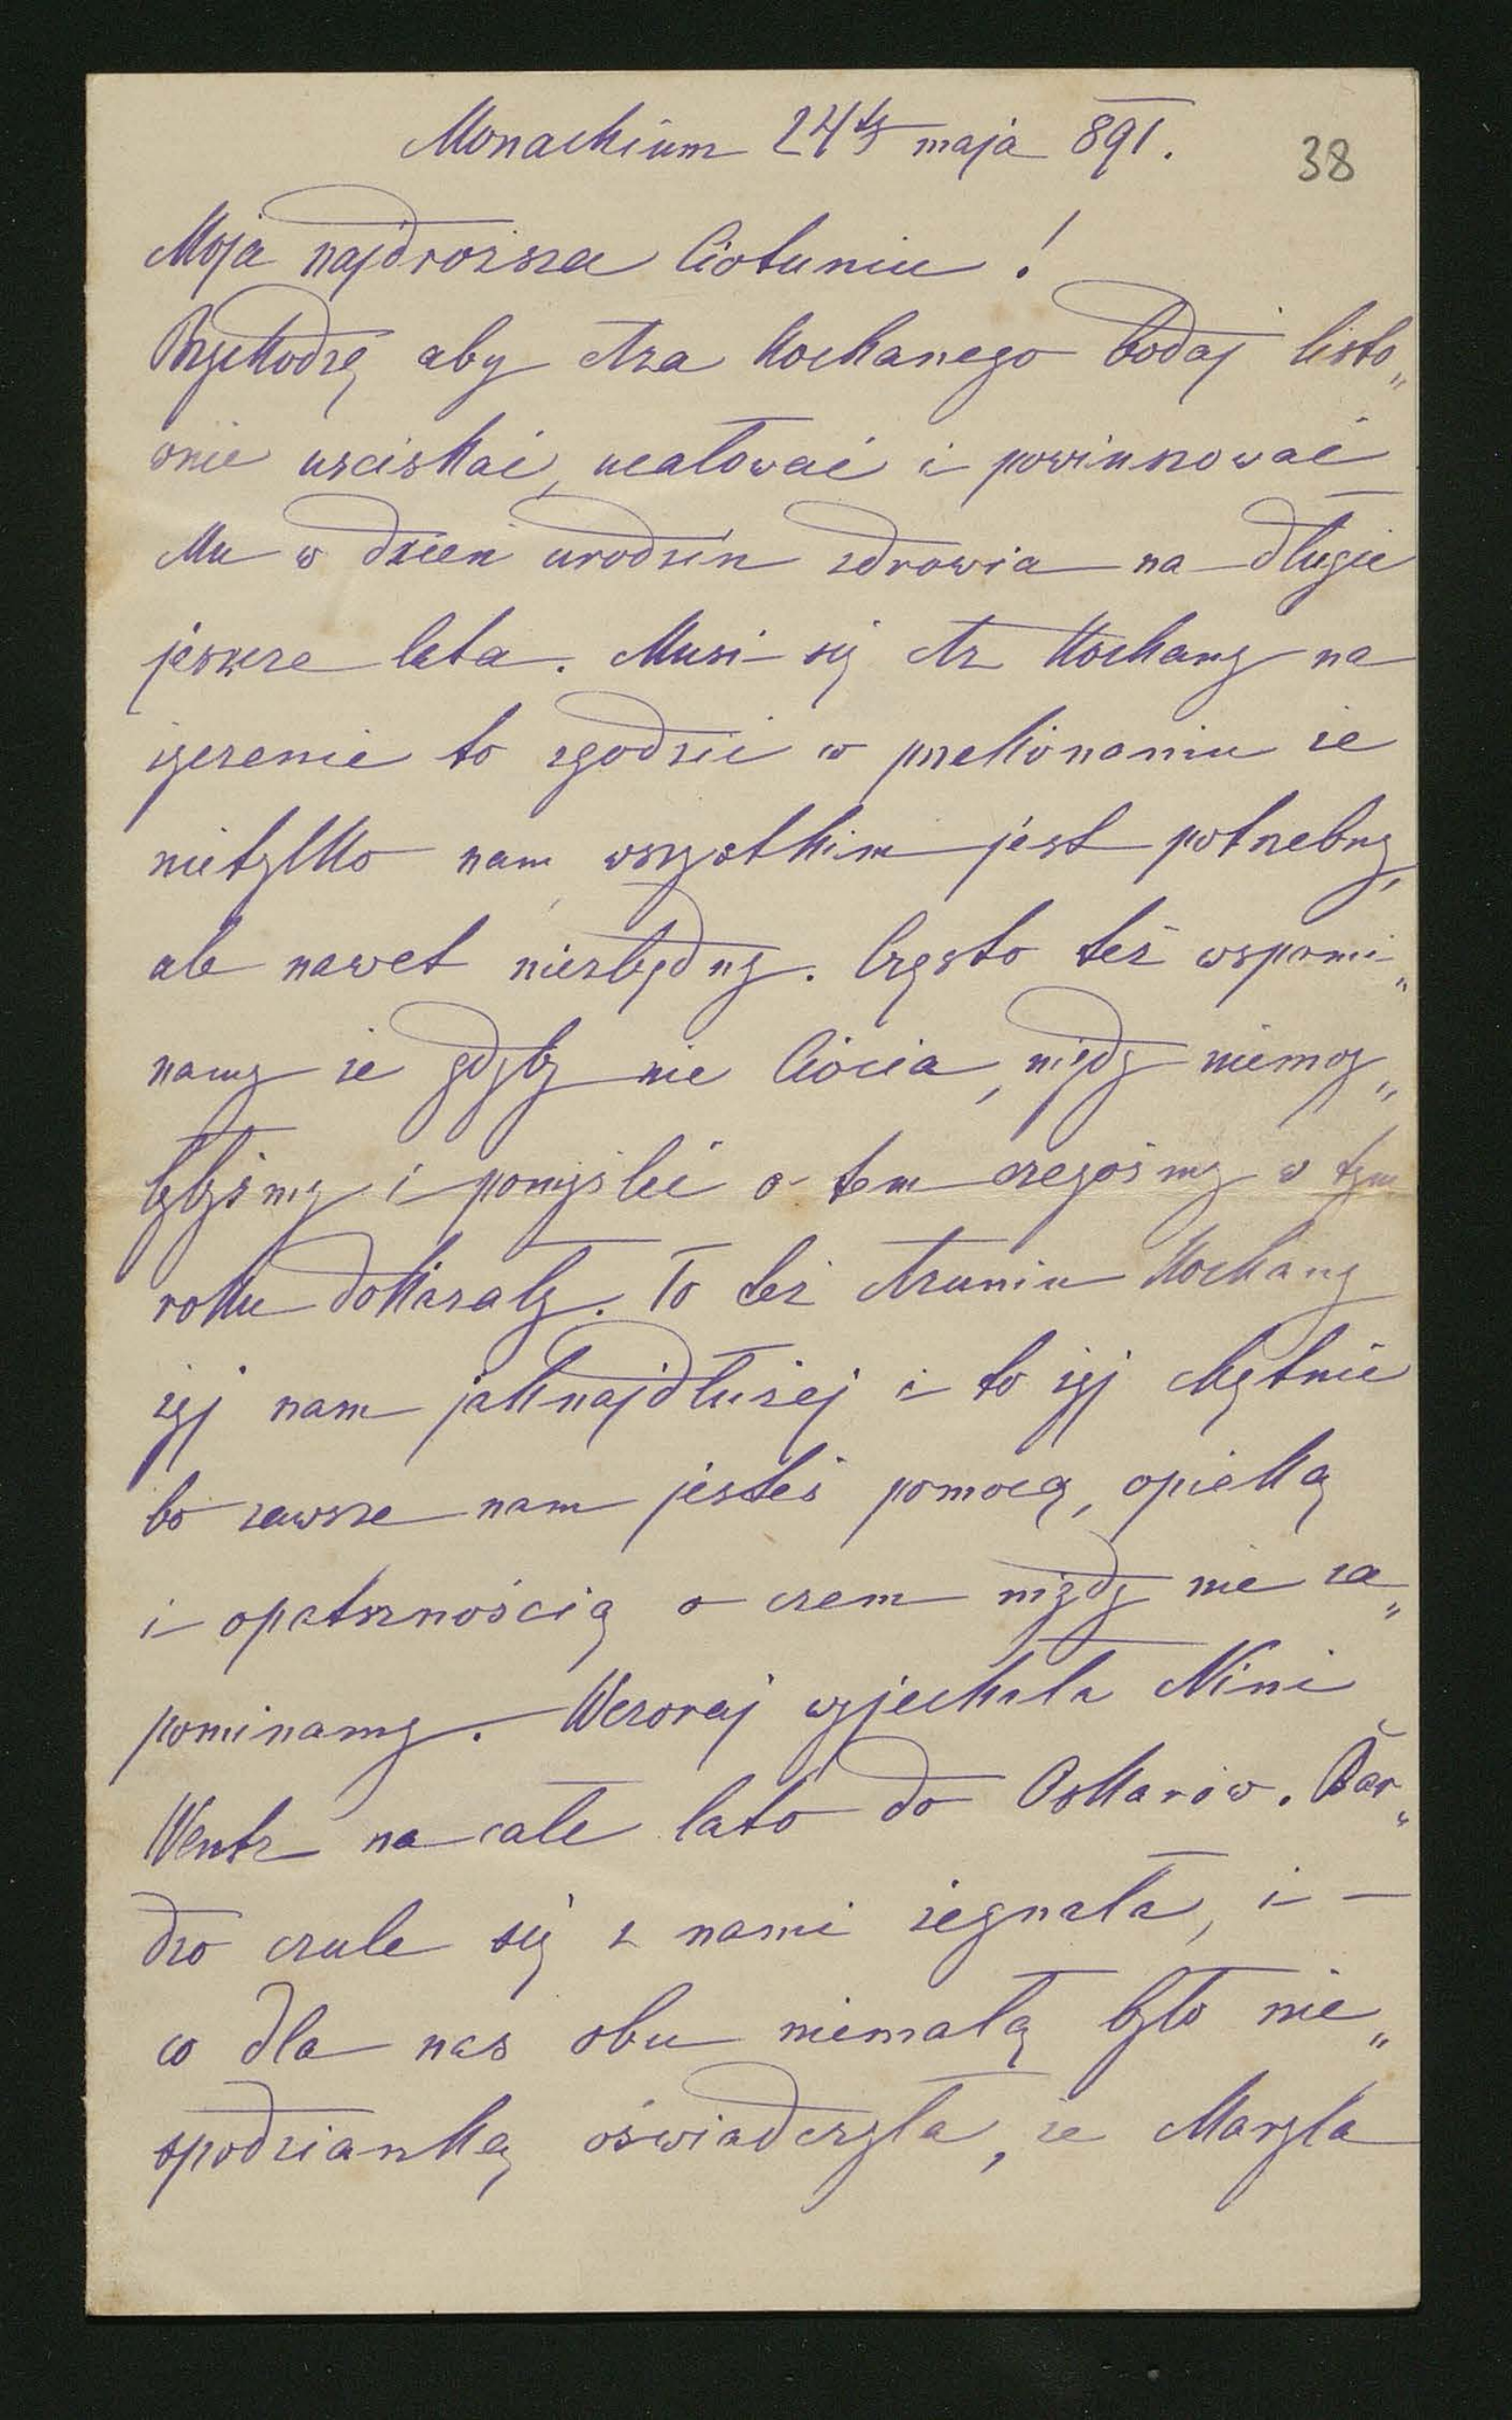 Monachium 24ts maja 891.
38
Moja najdrozsza Ciotuniu!
Przychodzę aby Asa kochanego bodaj listo„
wnie usciskać, ucałować i powinszować
Mu w dzień urodzin zdrowia na długie
jeszcze lata. Musi się As kochany na
życzenie to zgodzić w przekonaniu ze
nietylko nam wszystkim jest potrzebny,
ale nawet niezbędny. Często też wspomi„
namy ze gdyby nie Ciocia, nigdy niemog„
łybyśmy i pomyśleć o tem czegośmy w tym
roku dokazały. To też Asuniu kochany
żyj nam jaknajdłużej i to żyj chętnie
bo zawsze nam jesteś pomocą, opieką
i opatrznością o czem nigdy nie za„
pominamy. Wczoraj wyjechała Nini
Wentz na całe lato do Oskarów. Bar„
dzo czule się z nami żegnała, i –
co dla nas obu niemałą było nie„
spodzianką oświadczyła, ze Maryla